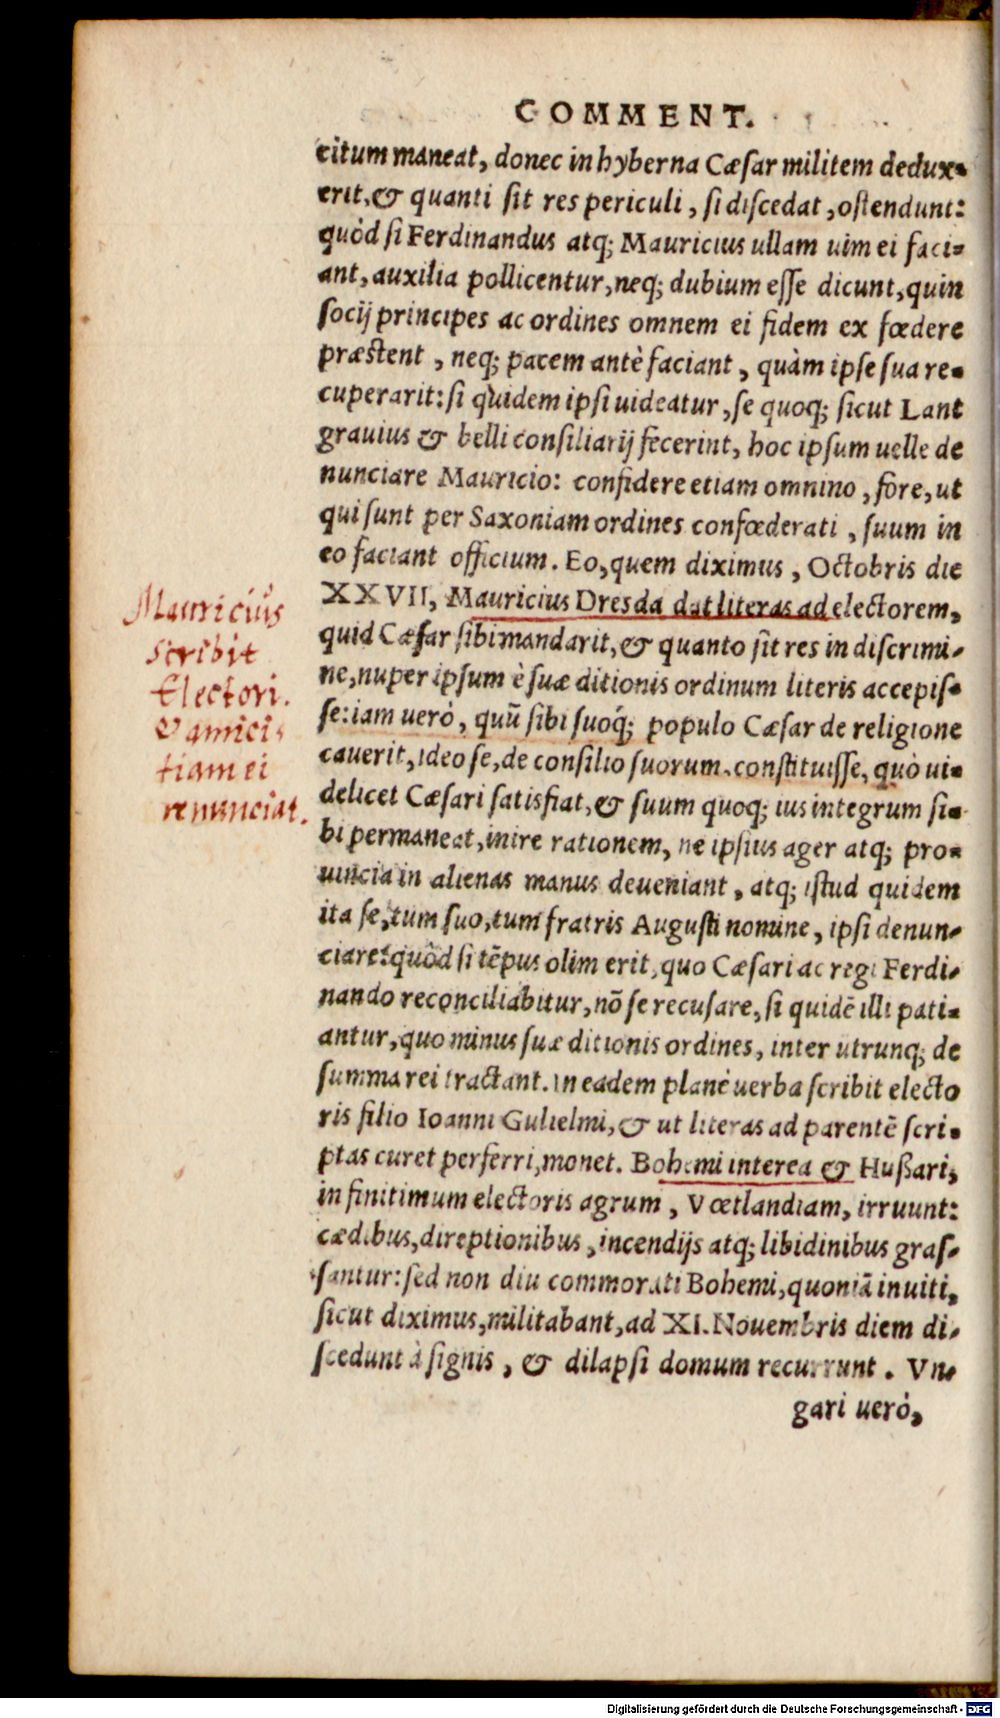 COMMENT.
citum maneat, donec in hyberna Cæsar militem dedux-
erit, & quanti sit res periculi, si discedat, ostendunt:
quòd si Ferdinandus atq; Mauricius ullam uim ei faci-
ant, auxilia pollicentur, neq; dubium esse dicunt, quin
socij principes ac ordines omnem ei fidem ex fœdere
præstent, neq; pacem antè faciant, quàm ipse sua re-
cuperarit: si quidem ipsi uideatur, se quoq; sicut Lant
grauius & belli consiliarij fecerint, hoc ipsum uelle de
nunciare Mauricio: confidere etiam omnino, fore, ut
qui sunt per Saxoniam ordines confœderati, suum in
eo faciant officium. Eo, quem diximus, Octobris die
XXVII, Mauricius Dresda dat literas ad electorem,
quid Cæsar sibi mandarit, & quanto sit res in discrimi-
ne, nuper ipsum è suæ ditionis ordinum literis accepis-
se: iam uerò, quũ sibi suoq́; populo Cæsar de religione
cauerit, ideo se, de consilio suorum, constituisse, quò ui-
delicet Cæsari satisfiat, & suum quoq; ius integrum si-
bi permaneat, inire rationem, ne ipsius ager atq; pro-
uincia in alienas manus deueniant, atq; istud quidem
ita se, tum suo, tum fratris Augusti nomine, ipsi denun-
ciare: quòd si tẽpus olim erit, quo Cæsari ac regi Ferdi-
nando reconciliabitur, nõ se recusare, si quidẽ illi pati-
antur, quo minus suæ ditionis ordines, inter utrunq; de
summa rei tractant. In eadem planè uerba scribit electo
ris filio Ioanni Gulielmi, & ut literas ad parentẽ scri-
ptas curet perferri, monet. Bohemi interea & Hußari,
in finitimum electoris agrum, Vœtlandiam, irruunt:
cædibus, direptionibus, incendijs atq; libidinibus gras-
santur: sed non diu commorati Bohemi, quoniã inuiti,
sicut diximus, militabant, ad XI. Nouembris diem di-
scedunt à signis, & dilapsi domum recurrunt. Vn-
gari uerò,
Mauricius
scribit
Electori.
& amici
tiam ei
renunciat.
Digitalisierung gefördert durch die Deutsche Forschungsgemeinschaft - DFG